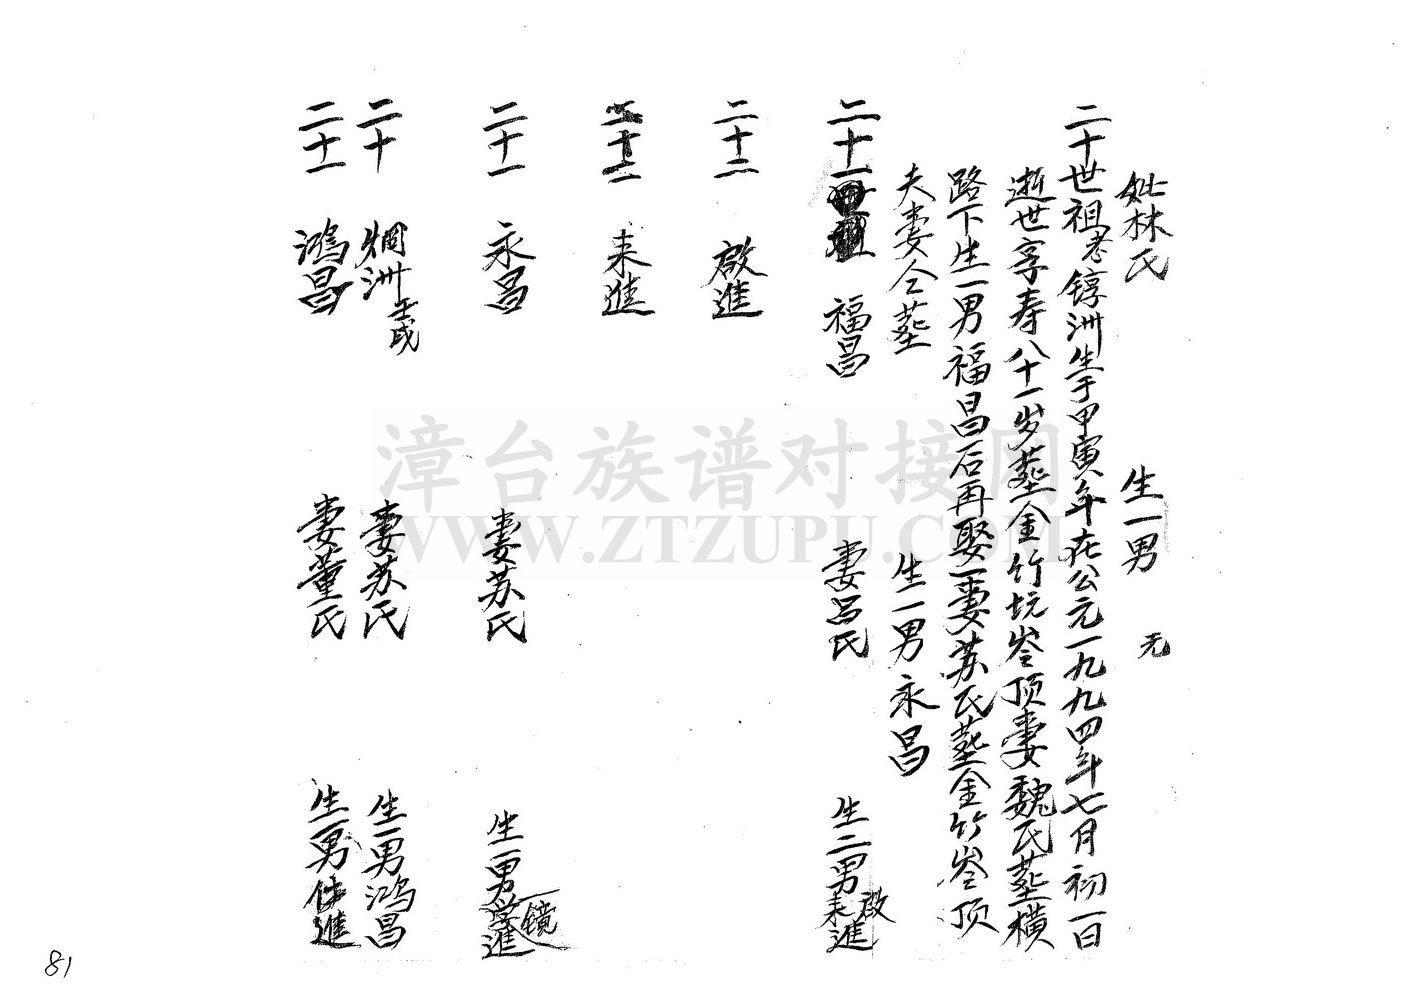 妣林氏 生一男 无
二十世祖考錞洲生于甲寅年在公元一九九四年七月初一日
逝世享寿八十一岁墓金竹坑岺顶妻魏氏墓横
路下生一男福昌后再娶一妻苏氏墓金竹岺顶
夫妻仝墓 生一男永昌
二十一 福昌 妻吕氏 生二男啟耒進
二十二 啟進
二十二 耒進
二十一 永昌 妻苏氏 生一男学進 镜
二十 烱洲 壬戌 妻苏氏 生一男鸿昌
二十一 鸿昌 妻董氏 生一男佳進
漳台族谱对接网
WWW.ZTZUPU.COM
81